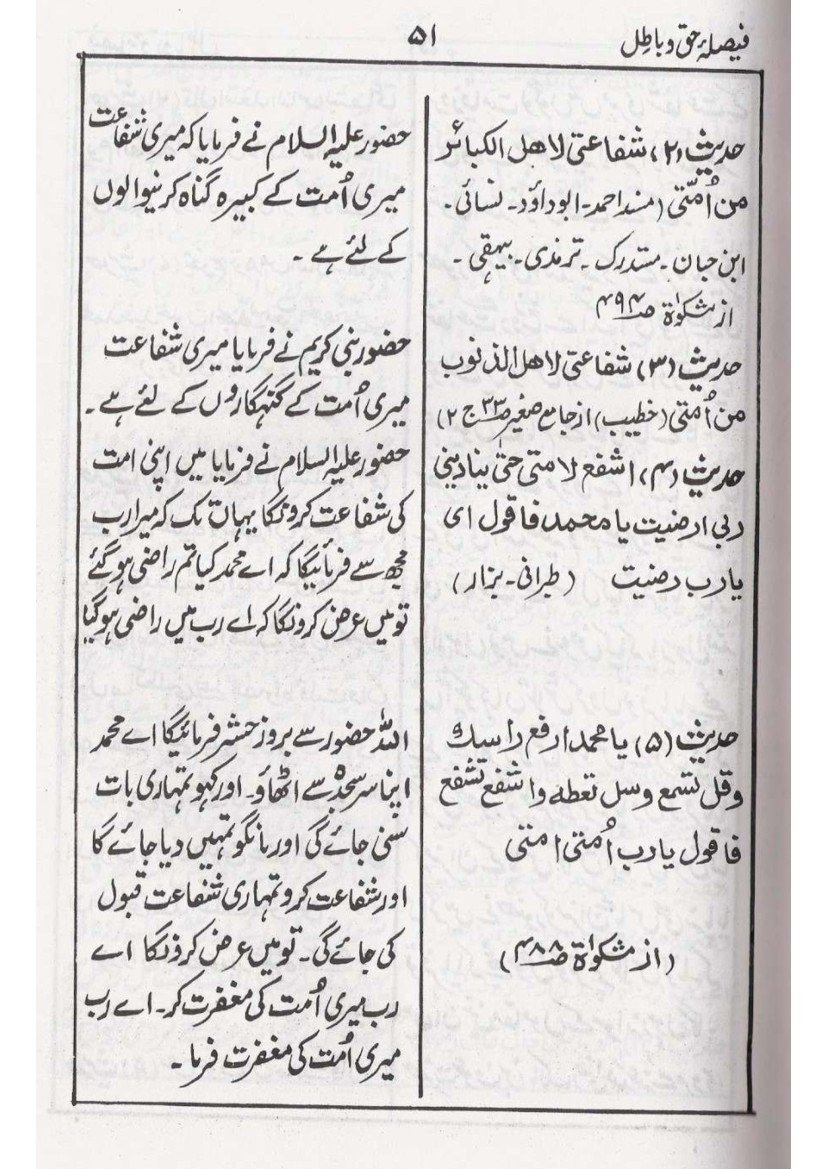 فیصلۂ حق و باطل
۵۱
حدیث (۲) شفاعتی لاهل الکبائر
من اُمّتی (مسند احمد۔ ابوداؤد۔ نسائی۔
ابن حبان۔ مستدرک۔ ترمذی۔ بیہقی۔
از مشکوٰۃ صـ۴۹۴
حدیث (۳) شفاعتی لاهل الذنوب
من اُمتی (خطیب) از جامع صغیر صـ۳۳ ج ۲)
حدیث (۴) اشفع لامتی حتی ینادینی
ربی ارضیت یا محمد فاقول ای
یارب رضیت (طبرانی۔ بزار)
حدیث (۵) یا محمد ارفع راسک
وقل تسمع وسل تعطه واشفع تشفع
فاقول یارب اُمتی امتی
(از مشکوٰۃ صـ۴۸۸)
حضور علیہ السلام نے فرمایا کہ میری شفاعت
میری اُمت کے کبیرہ گناہ کرنیوالوں
کے لئے ہے ۔
حضور نبی کریم نے فرمایا میری شفاعت
میری اُمت کے گنہگاروں کے لئے ہے ۔
حضور علیہ السلام نے فرمایا میں اپنی امت
کی شفاعت کرونگا یہاں تک کہ میرا رب
مجھ سے فرمائیگا کہ اے محمد کیا تم راضی ہو گئے
تو میں عرض کرونگا کہ اے رب میں راضی ہو گیا
اللہ حضور سے بروز حشر فرمائیگا اے محمد
اپنا سر سجدہ سے اٹھاؤ۔ اور کہو تمہاری بات
سنی جائے گی اور مانگو تمہیں دیا جائے گا
اور شفاعت کرو تمہاری شفاعت قبول
کی جائے گی۔ تو میں عرض کرونگا اے
رب میری اُمت کی مغفرت کر۔ اے رب
میری اُمت کی مغفرت فرما ۔